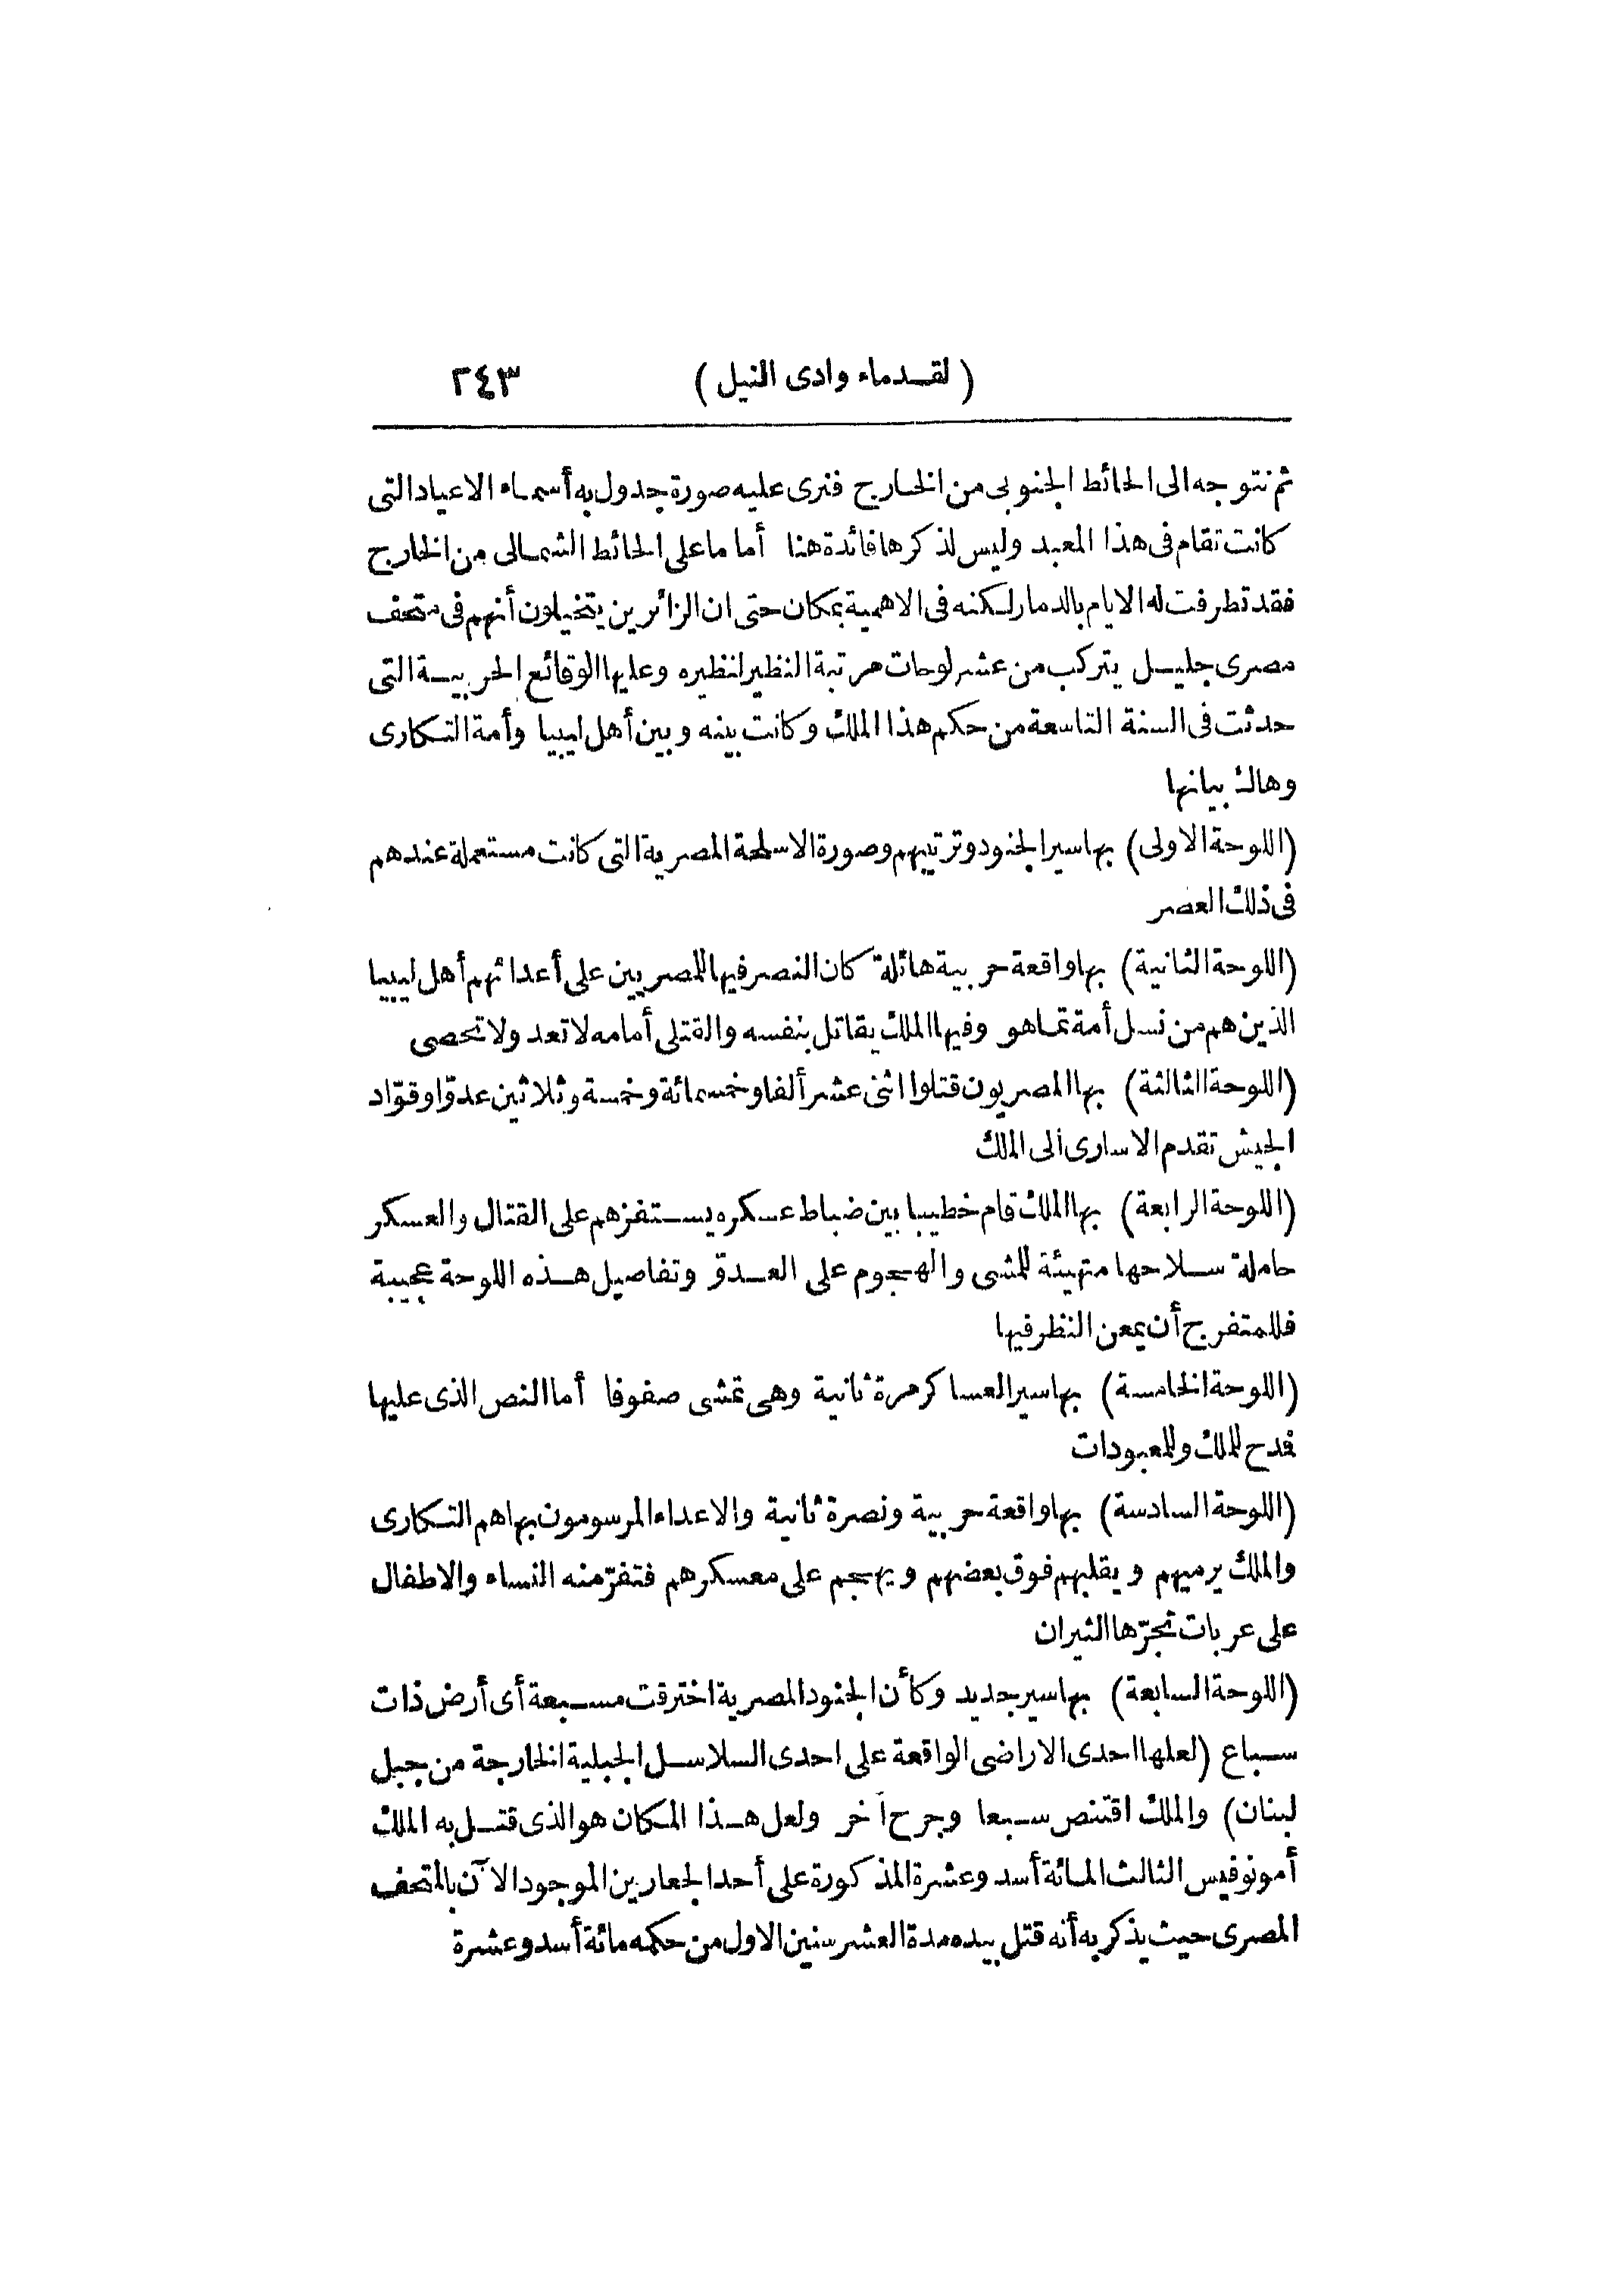 (لقدماء وادى النيل) ٢٤٣
ثم نتوجه الى الحائط الجنوبى من الخارج فنرى عليه صورة جدول به أسماء الاعياد التى
كانت تقام فى هذا المعبد وليس لذكرها فائدة هنا أما ما على الحائط الشمالى من الخارج
فقد تطرفت له الايام بالدمار لكنه فى الاهمية بمكان حتى ان الزائرين يتخيلون أنهم فى متحف
مصرى جليل يتركب من عشر لوحات مرتبة النظير لنظيره وعليها الوقائع الحربية التى
حدثت فى السنة التاسعة من حكم هذا الملك وكانت بينه وبين أهل ليبيا وأمة التكارى
وهاك بيانها
(اللوحة الاولى) بها سير الجنود وترتيبهم وصورة الاسلحة المصرية التى كانت مستعملة عندهم
فى ذلك العصر
(اللوحة الثانية) بها واقعة حربية هائلة كان النصر فيها للمصريين على أعدائهم أهل ليبيا
الذين هم من نسل أمة تماهو وفيها الملك يقاتل بنفسه والقتلى أمامه لا تعد ولا تحصى
(اللوحة الثالثة) بها المصريون قتلوا اثنى عشر ألفا وخمسمائة وخمسة وثلاثين عدوّا وقوّاد
الجيش تقدم الاسارى الى الملك
(اللوحة الرابعة) بها الملك قام خطيبا بين ضباط عسكره يستفزهم على القتال والعسكر
حاملة سلاحها متهيئة للمشى والهجوم على العدوّ وتفاصيل هذه اللوحة عجيبة
فللمتفرج أن يمعن النظر فيها
(اللوحة الخامسة) بها سير العساكر مرة ثانية وهى تمشى صفوفا أما النص الذى عليها
فمدح للملك وللمعبودات
(اللوحة السادسة) بها واقعة حربية ونصرة ثانية والاعداء المرسومون بها هم التكارى
والملك يرميهم ويقلبهم فوق بعضهم ويهجم على معسكرهم فتفرّ منه النساء والاطفال
على عربات تجرّها الثيران
(اللوحة السابعة) بها سير جديد وكأن الجنود المصرية اخترقت مسبعة أى أرض ذات
سباع (لعلها احدى الاراضى الواقعة على احدى السلاسل الجبلية الخارجة من جبل
لبنان) والملك اقتنص سبعا وجرح آخر ولعل هذا المكان هو الذى قتل به الملك
أمونوفيس الثالث المائة أسد وعشرة المذكورة على أحد الجعارين الموجود الآن بالمتحف
المصرى حيث يذكر به أنه قتل بيده مدة العشر سنين الاول من حكمه مائة أسد وعشرة